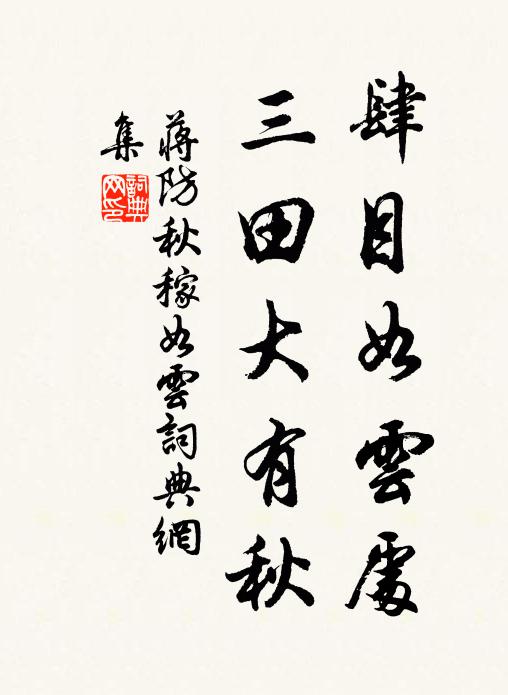 肆目如雲處
三田大有秋
蔣防秋稼如雲詞典網
集
詞典
网印